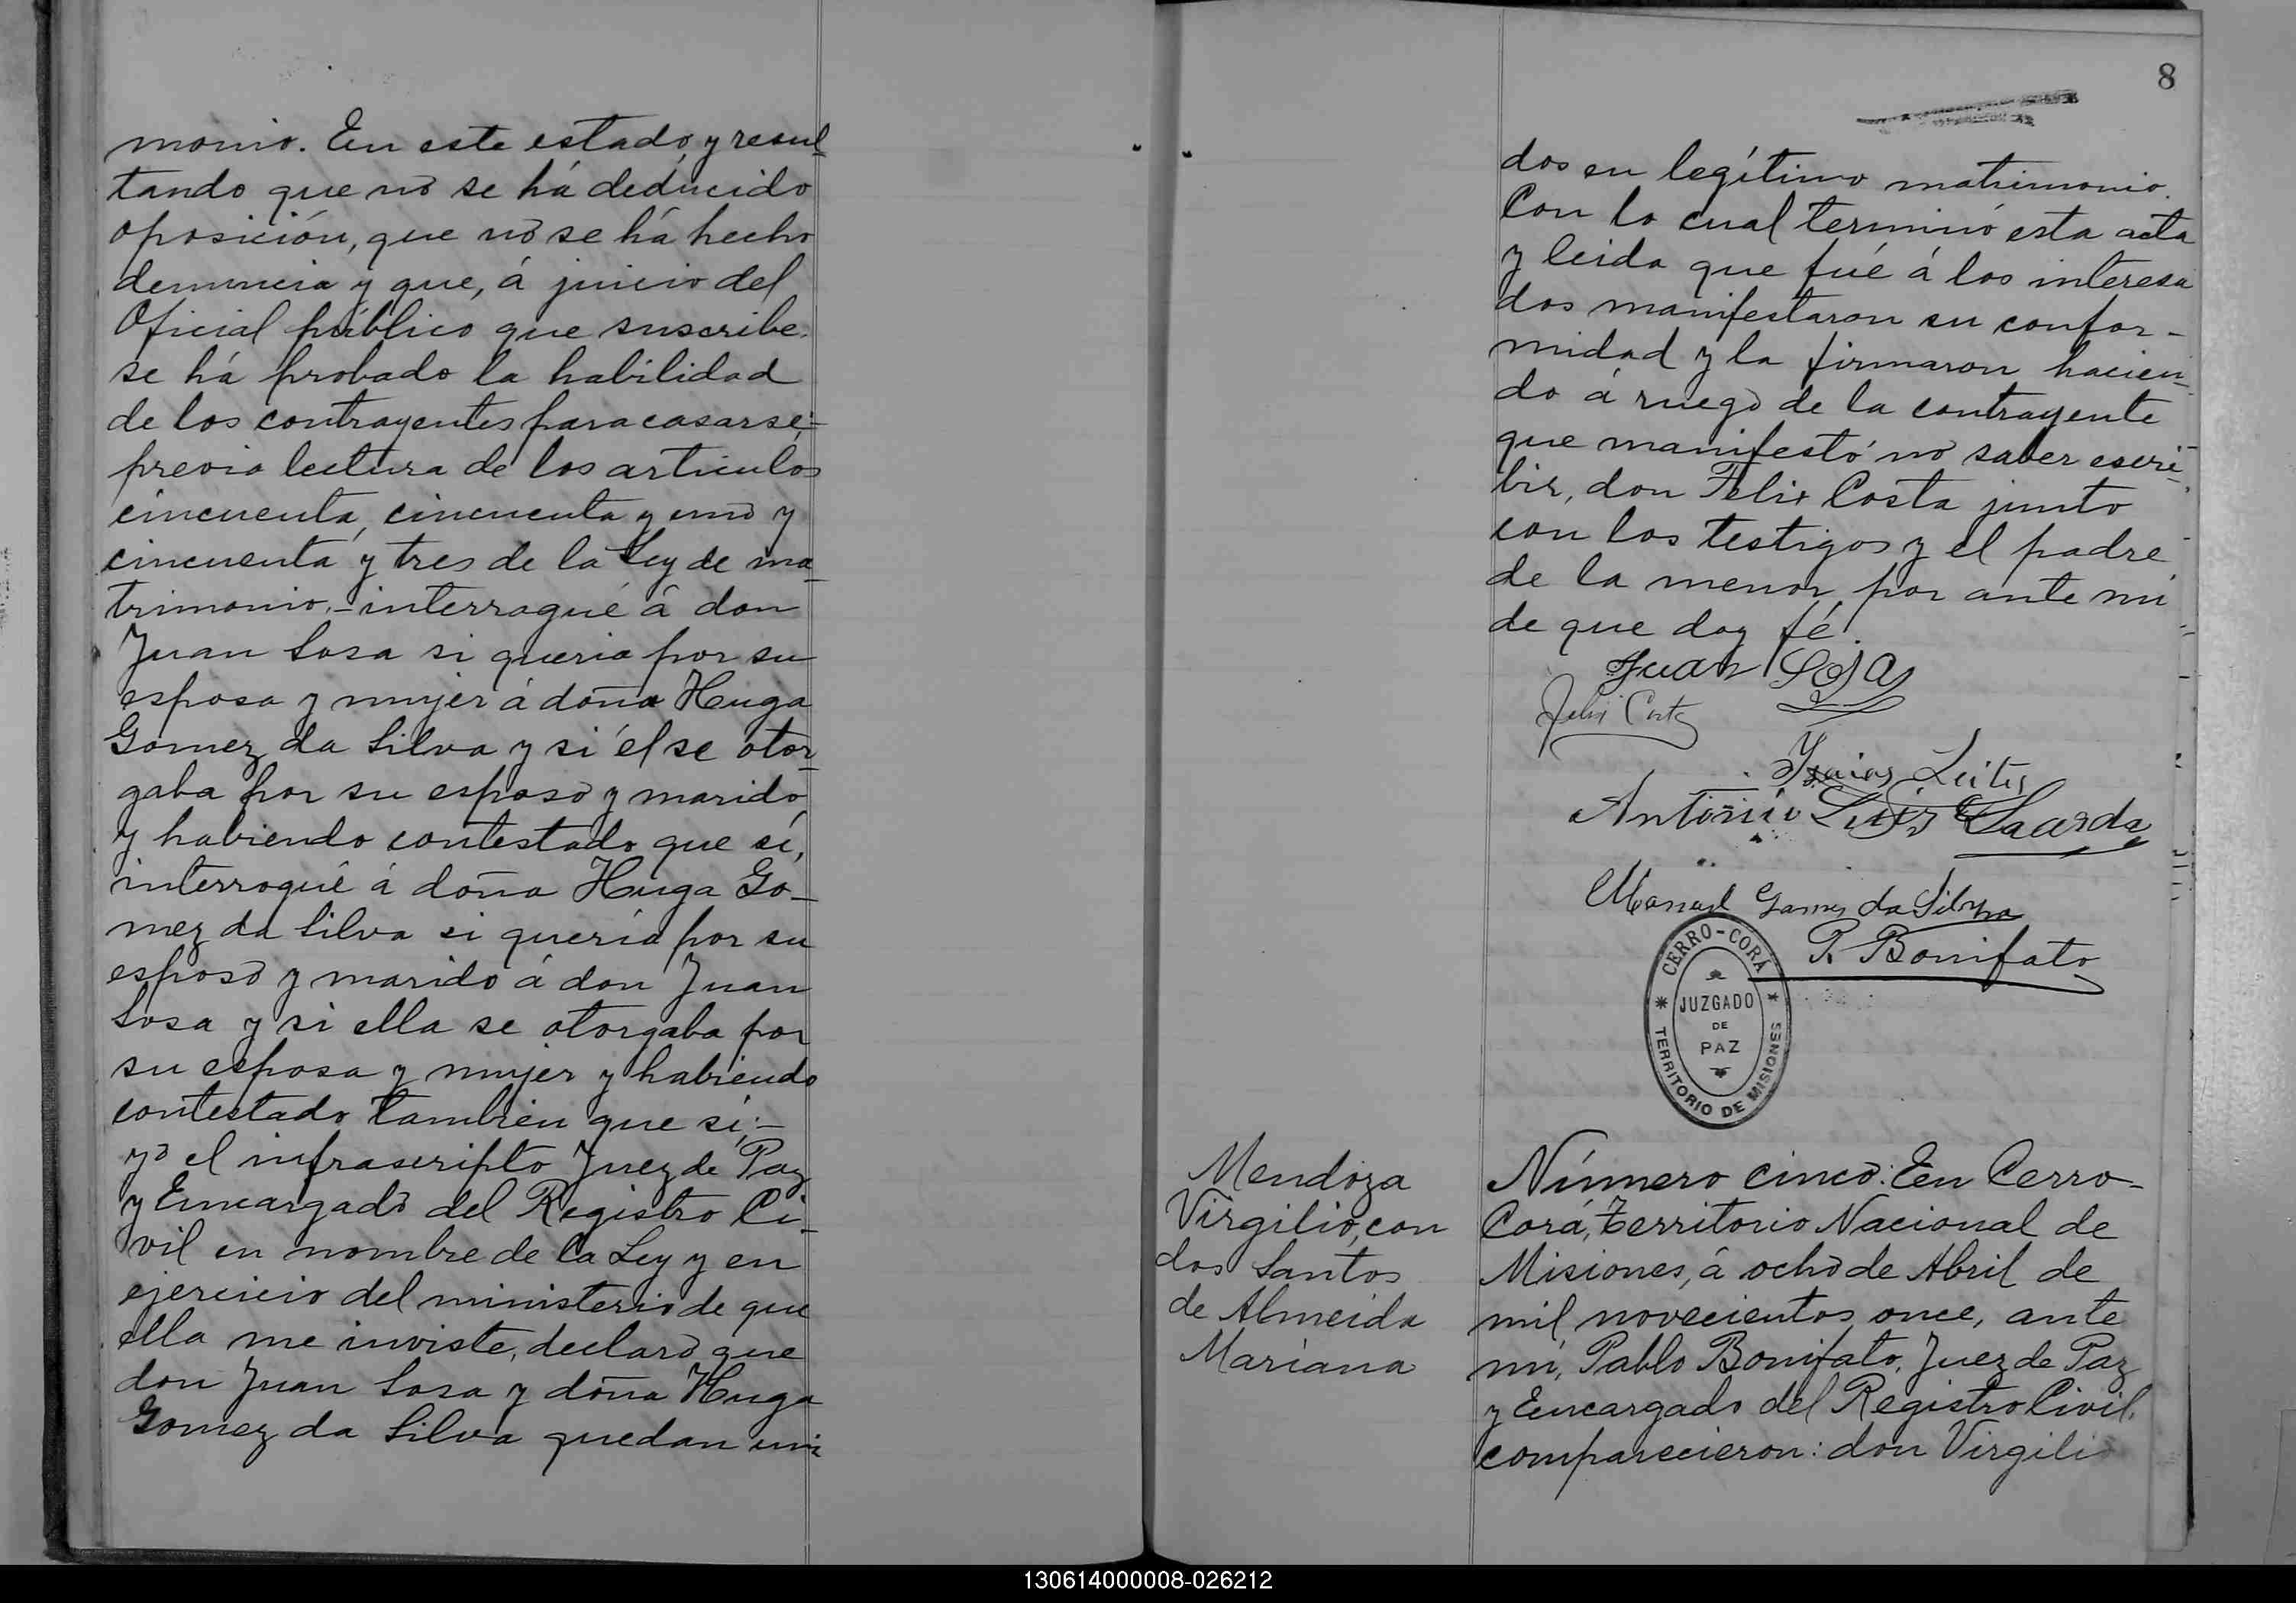 monio. En este estado, y resul-
tando que no se há deducido
oposición, que no se há hecho
denuncia y que, á juicio del
Oficial público que suscribe,
se há probado la habilidad
de los contrayentes para casarse;-
previa lectura de los articulos
cincuenta, cincuenta y uno y
cincuenta y tres de la Ley de ma-
trimonio,- interrogué á don
Juan Sosa si queria por su
esposa y mujer á doña Huga
Gomez da Silva y si él se otor-
gaba por su esposo y marido
y habiendo contestado que sí,
interrogué á doña Huga Go-
mez da Silva si quería por su
esposo y marido á don Juan
Sosa y si ella se otorgaba por
su esposa y mujer y habiendo
contestado tambien que sí;-
yo el infrascripto Juez de Paz
y Encargado del Registro Ci-
vil en nombre de la Ley y en
ejercicio del ministerio de que
ella me inviste, declaro que
don Juan Sosa y doña Huga
Gomez da Silva quedan uni-
8
dos en legítimo matrimonio.
Con lo cual terminó esta acta
y leida que fué á los interesa
dos manifestaron su confor-
midad y la firmaron hacien-
do á ruego de la contrayente
que manifestó no saber escri-
bir, don Felix Costa junto
con los testigos y el padre
de la menor, por ante mi
de que doy fé.
Juan Sosa
Felix Costa
Isaias Leites
Antonio Luis
Manuel Gomes da Silva
P. Bonifato
CERRO-CORÁ
JUZGADO
DE
PAZ
TERRITORIO DE MISIONES
Mendoza
Virgilio, con
dos Santos
de Almeida
Mariana
Número cinco: En Cerro-
Corá, Territorio Nacional de
Misiones, á ocho de Abril de
mil novecientos once, ante
mi, Pablo Bonifato, Juez de Paz
y Encargado del Registro Civil,
comparecieron: don Virgilio
130614000008-026212